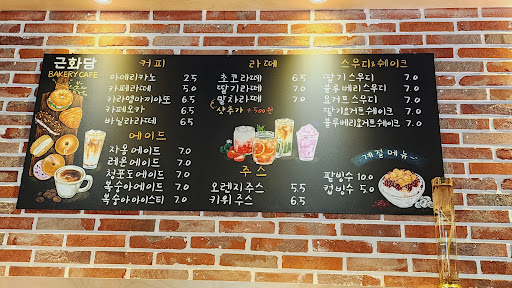 근화당
BAKERY CAFE
커피
아메리카노 2.5
카페라떼 5.0
카라멜마끼아또 6.5
카페모카 6.5
바닐라라떼 6.5
에이드
자몽에이드 7.0
레몬에이드 7.0
청포도에이드 7.0
복숭아에이드 7.0
복숭아아이스티 7.0
라떼
초코라떼 6.5
딸기라떼 7.0
말차라떼 7.0
샷추가 +500원
주스
오렌지주스 5.5
키위주스 6.5
스무디&쉐이크
딸기스무디 7.0
블루베리스무디 7.0
요거트스무디 7.0
딸기요거트쉐이크 7.0
블루베리요거트쉐이크 7.0
계절메뉴
팥빙수 10.0
컵빙수 5.0